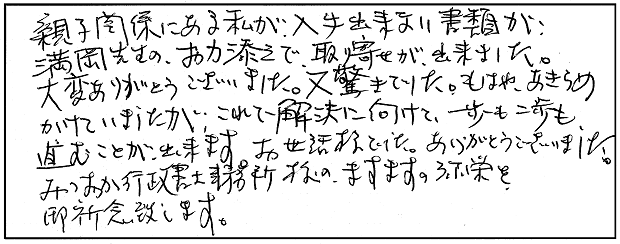 親子関係にある私が、入手出来まい書類が、
満岡先生の、お力添えで、取り寄せが、出来ました。
大変ありがとうございました。又驚きでした。もはや、あきらめ
かけていましたが、これで解決に向けて、一歩も二歩も
進むことが、出来ます お世話様でした。ありがとうございました。
みつおか行政書士事務所様の、ますますの弥栄を
御祈念致します。